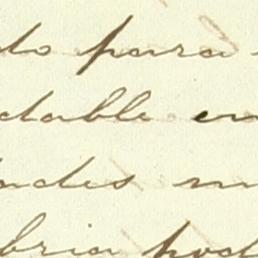 do para
dable en
dades m
bria pod